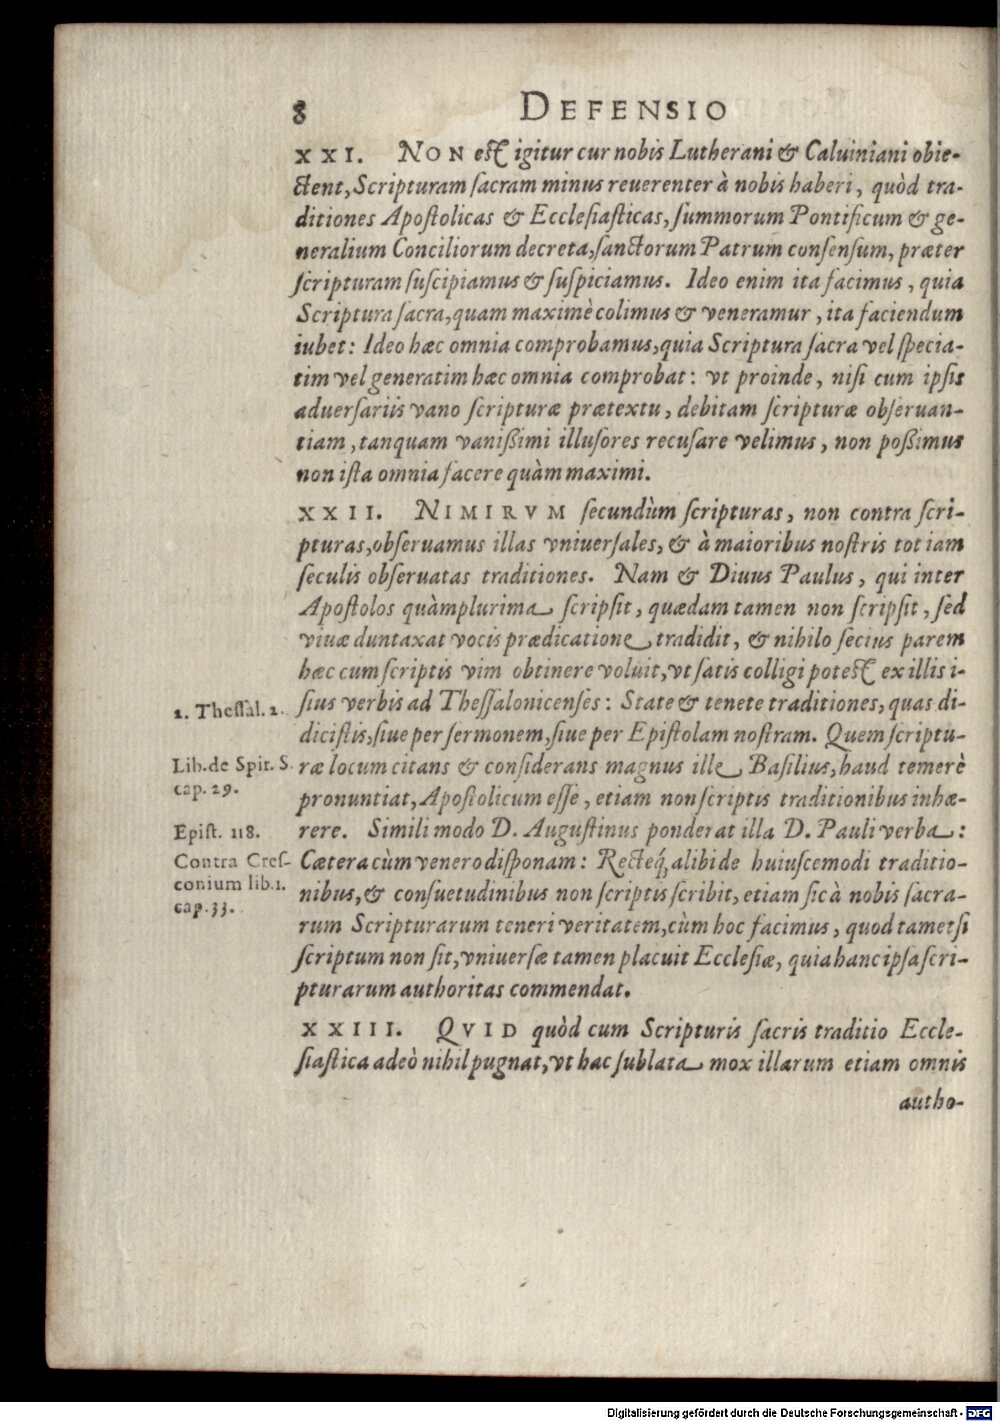 8 DEFENSIO
XXI. NON est igitur cur nobis Lutherani & Caluiniani obie-
ctent, Scripturam sacram minus reuerenter à nobis haberi, quòd tra-
ditiones Apostolicas & Ecclesiasticas, summorum Pontificum & ge-
neralium Conciliorum decreta, sanctorum Patrum consensum, præter
scripturam suscipiamus & suspiciamus. Ideo enim ita facimus, quia
Scriptura sacra, quam maximè colimus & veneramur, ita faciendum
iubet: Ideo hæc omnia comprobamus, quia Scriptura sacra vel specia-
tim vel generatim hæc omnia comprobat: vt proinde, nisi cum ipsis
aduersariis vano scripturæ prætextu, debitam scripturæ obseruan-
tiam, tanquam vanißimi illusores recusare velimus, non poßimus
non ista omnia facere quàm maximi.
XXII. NIMIRVM secundùm scripturas, non contra scri-
pturas, obseruamus illas vniuersales, & à maioribus nostris tot iam
seculis obseruatas traditiones. Nam & Diuus Paulus, qui inter
Apostolos quàmplurima scripsit, quædam tamen non scripsit, sed
viuæ duntaxat vocis prædicatione tradidit, & nihilo secius parem
hæc cum scriptis vim obtinere voluit, vt satis colligi potest ex illis i-
1. Thessal. 2. sius verbis ad Thessalonicenses: State & tenete traditiones, quas di-
dicistis, siue per sermonem, siue per Epistolam nostram. Quem scriptu-
Lib. de Spir. S. ræ locum citans & considerans magnus ille Basilius, haud temerè
cap. 29. pronuntiat, Apostolicum esse, etiam non scriptis traditionibus inhæ-
Epist. 118. rere. Simili modo D. Augustinus ponderat illa D. Pauli verba:
Contra Cres- Cætera cùm venero disponam: Recteq́ꝫ alibi de huiuscemodi traditio-
conium lib. 1. nibus, & consuetudinibus non scriptis scribit, etiam sic à nobis sacra-
cap. 33. rum Scripturarum teneri veritatem, cùm hoc facimus, quod tametsi
scriptum non sit, vniuersæ tamen placuit Ecclesiæ, quia hanc ipsa scri-
pturarum authoritas commendat.
XXIII. QVID quòd cum Scripturis sacris traditio Eccle-
siastica adeò nihil pugnat, vt hac sublata mox illarum etiam omnis
autho-
Digitalisierung gefördert durch die Deutsche Forschungsgemeinschaft - DFG